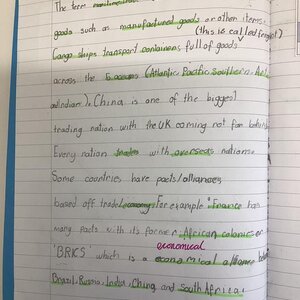 The term
goods such as manufactured goods or other items.
(this is called freight)
Cargo ships transport containers full of goods
across the 5 oceans (Atlantic Pacific Southern
and Indian). China is one of the biggest
trading nation with the UK coming not far behind
Every nation trades with overseas nations.
Some countries have pacts/alliances
based off trade/economy. For example "France has
many pacts with its former African colonies or
economical
'BRICS' which is a economical alliance
Brazil, Russia, India, China and South Africa.